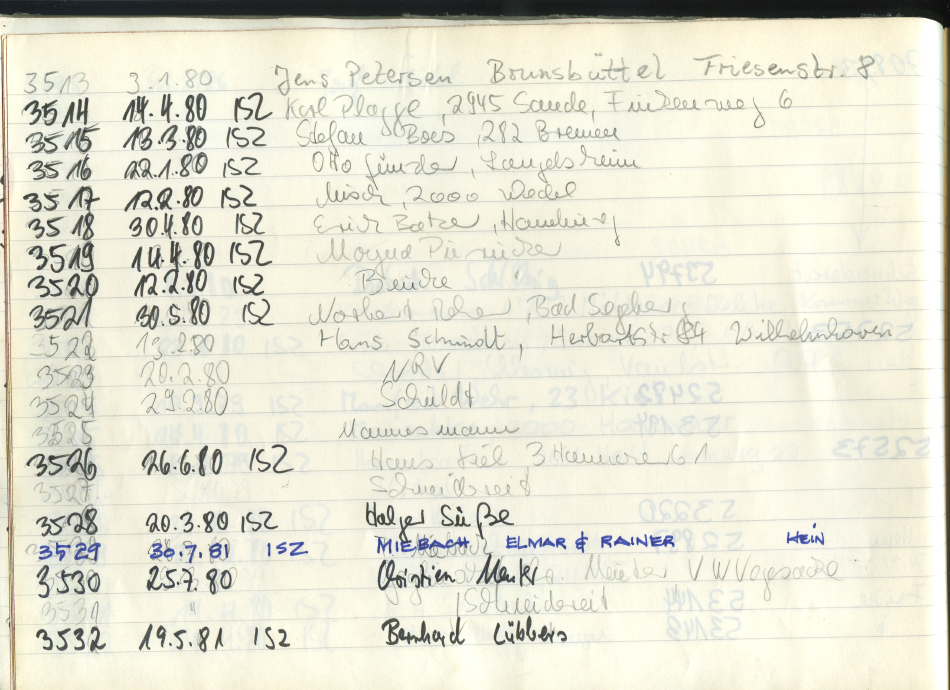 3513 3.1.80 Jens Petersen Brunsbüttel Friesenstr. 8
3514 14.4.80 ISZ Karl Plagge, 2945 Sande, Finkenweg 6
3515 13.3.80 ISZ Stefan Boes, 282 Bremen
3516 22.1.80 ISZ Otto Günder, Langelsheim
3517 12.2.80 ISZ 2000 Wedel
3518 30.4.80 ISZ Erich, Hamburg
3519 14.4.80 ISZ
3520 12.2.80 ISZ
3521 30.5.80 ISZ Norbert, Bad Segeberg
3522 13.2.80 Hans Schmidt, Herbartstr 84 Wilhelmshaven
3523 20.2.80 NRV
3524 29.2.80 Schuldt
3525 Mannesmann
3526 26.6.80 ISZ Hans, 3 Hannover 61
3527 Schneidereit
3528 20.3.80 ISZ Holger Süße
3529 30.7.81 ISZ MIEBACH ELMAR & RAINER HEIN
3530 25.7.80 Christian VW
3531 " Schneidereit
3532 19.5.81 ISZ Bernhard Lübbers